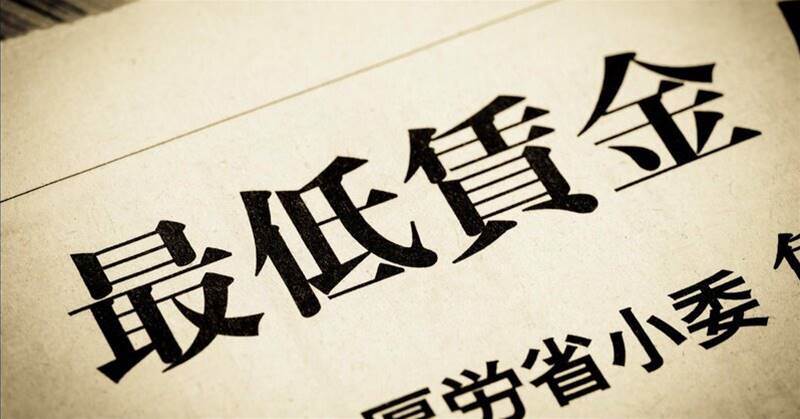 最低賃金
厚労省小委